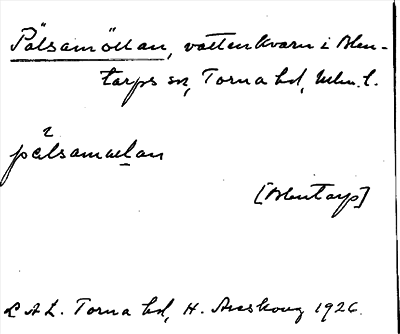 Pölsamöllan, vattenkvarn i Blen-
tarps sn, Torna hd, Mlm. l.
pölsamɯlan
[Blentarp]
L A L. Torna hd, H. Areskoug 1926.